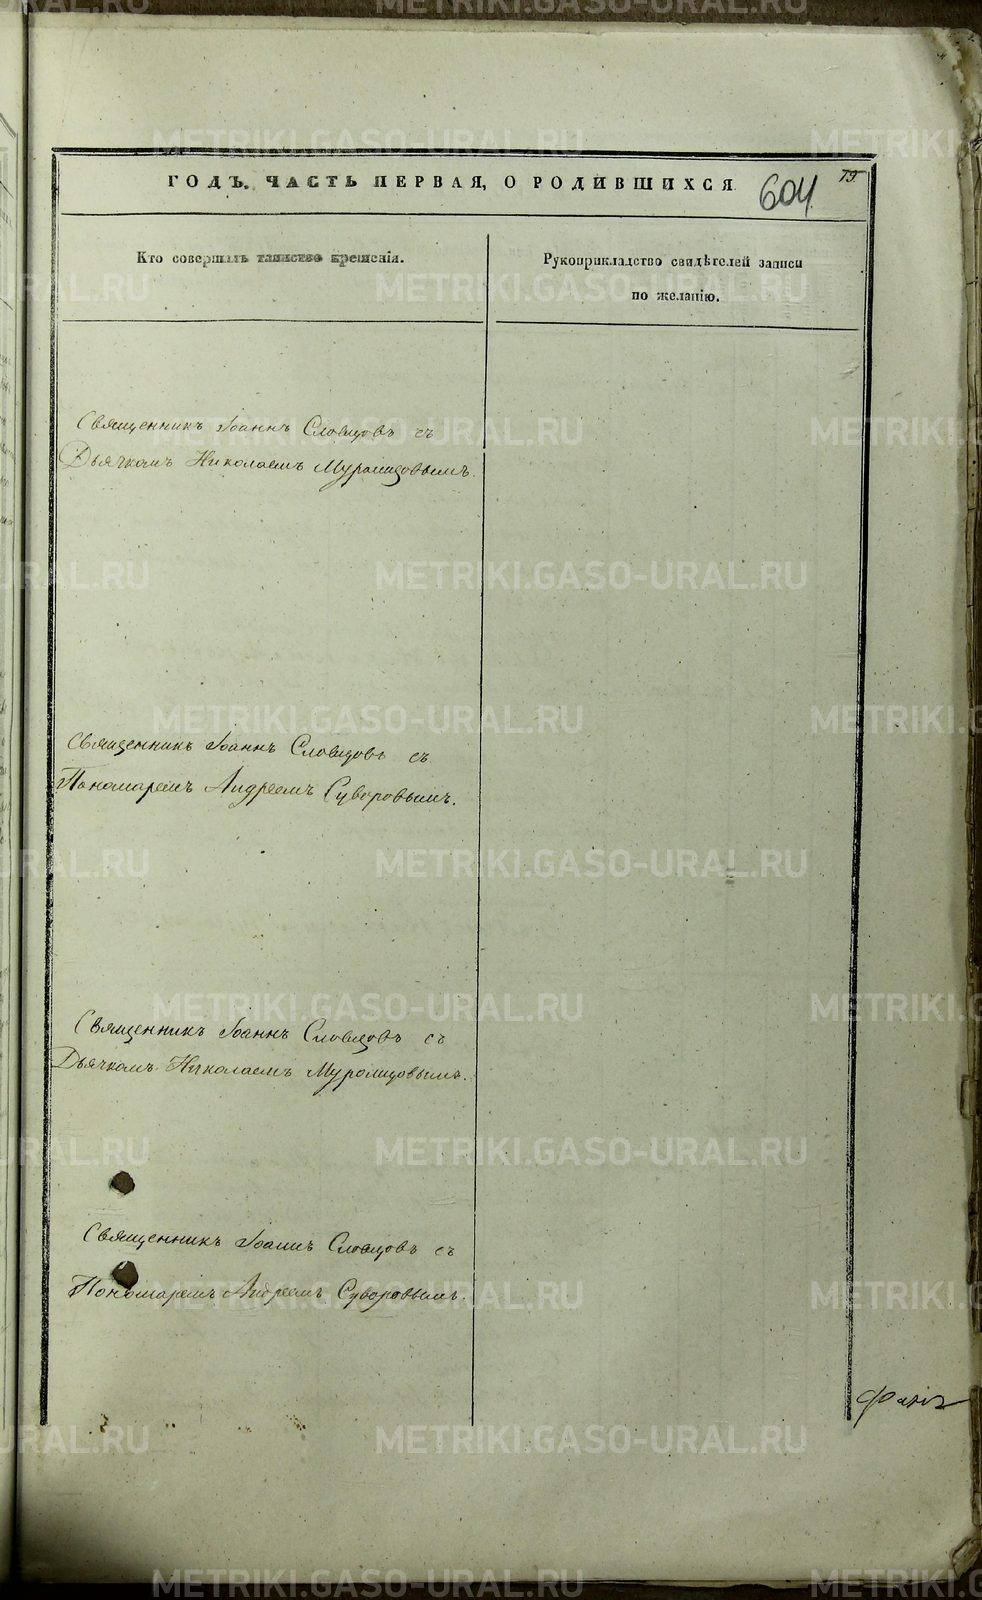 ГОДЪ. ЧАСТЬ ПЕРВАЯ, О РОДИВШИХСЯ
604
75
Кто совершалъ таинство крещенія.
Рукоприкладство свидѣтелей записи
по желанію.
Священникъ Іоаннъ Словцовъ съ
Дьячкомъ Николаемъ Муромцовымъ.
Священникъ Іоаннъ Словцовъ съ
Пономаремъ Андреемъ Суворовымъ.
Священникъ Іоаннъ Словцовъ съ
Дьячкомъ Николаемъ Муромцовымъ.
Священникъ Іоаннъ Словцовъ съ
Пономаремъ Андреемъ Суворовымъ.
METRIKI.GASO-URAL.RU